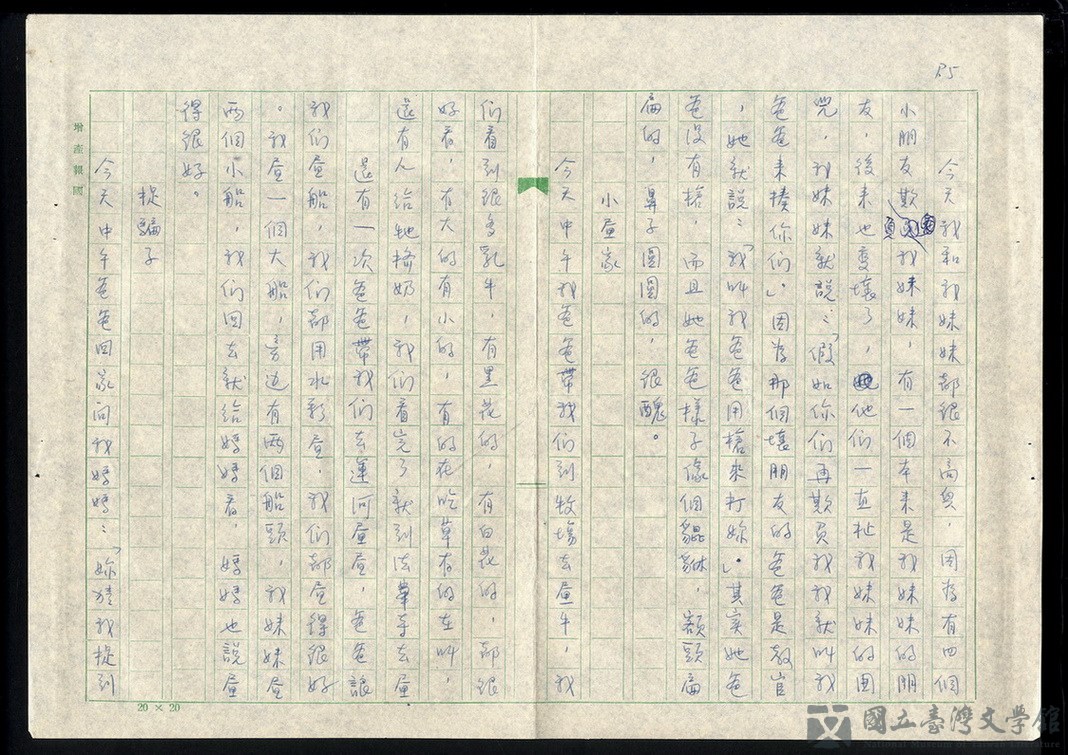 P5
今天我和我妹妹都很不高興，因為有四個
小朋友欺負我妹妹，有一個本來是我妹妹的朋
友，後來也變壞了，他們一直扯我妹妹的圍
兜，我妹妹就說：「假如你們再欺負我我就叫我
爸爸來揍你們」，因為那個壞朋友的爸爸是教官
，她就說：「我叫我爸爸用槍來打妳」。其實她爸
爸沒有槍，而且她爸爸樣子像個貔貅，額頭扁
扁的，鼻子圓圓的，很醜。
小畫家
今天中午我爸爸帶我們到牧場去畫牛，我
們看到很多乳牛，有黑花的，有白花的，都很
好看，有大的有小的，有的在吃草有的在叫，
還有人給牠擠奶，我們看完了就到法華寺去畫
還有一次爸爸帶我們去運河畫畫，爸爸讓
我們畫船，我們都用水彩畫，我們都畫得很好
。我畫一個大船，旁邊有兩個船頭，我妹妹畫
兩個小船，我們回去就給媽媽看，媽媽也說畫
得很好。
捉騙子
今天中午爸爸回家問我媽媽：「妳猜我捉到
增產報國
20 × 20
國立臺灣文學館